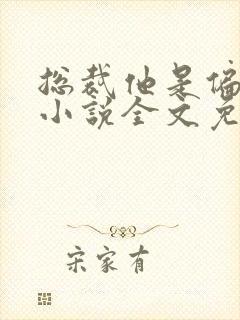 总裁他是偏
小说全文免
宋家有